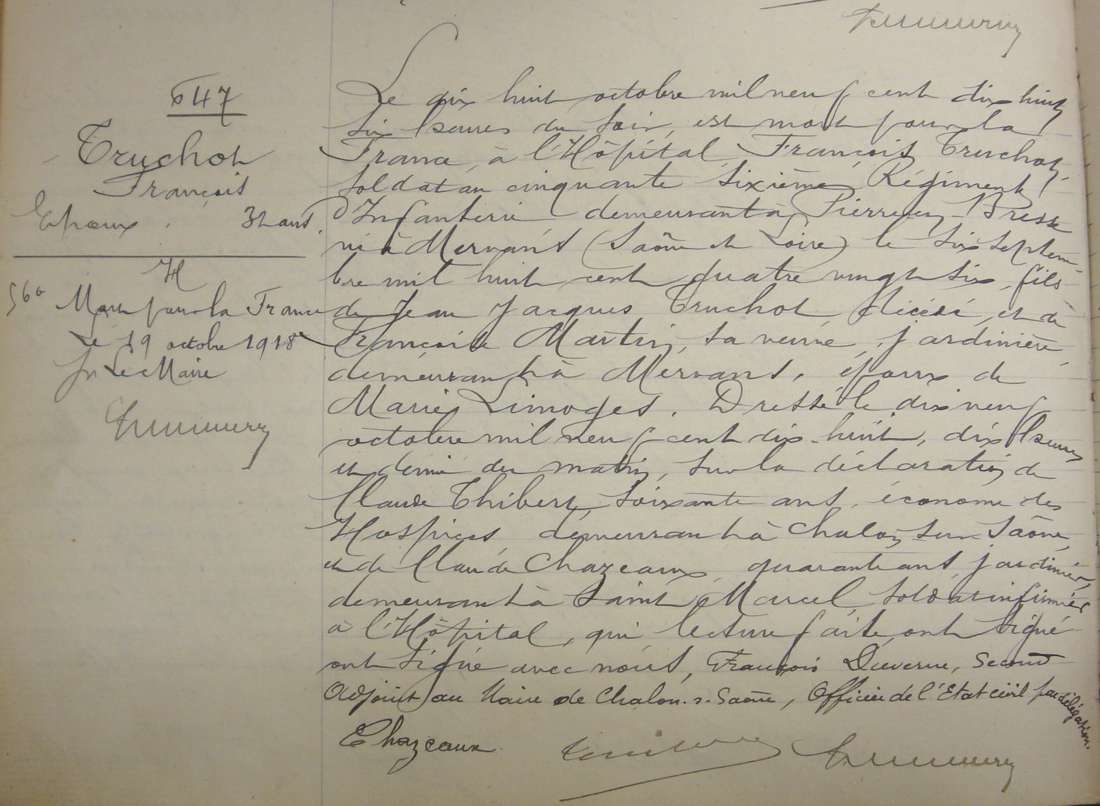 647
Truchot
François
Epoux. 32 ans.
H
560
Mort pour la France
Le 19 octobre 1918
Le Maire
Le dix huit octobre mil neuf cent dix huit
six heures du soir, est mort pour la
France à l'Hôpital, François Truchot,
soldat au cinquante sixième Régiment
d'Infanterie demeurant à Pierre en Bresse
né à Mervans (Saône et Loire) le six septem-
bre mil huit cent quatre vingt six, fils
de Jean Jacques Truchot décédé, et de
Françoise Martin, sa veuve, jardinière
demeurant à Mervans, époux de
Marie Limoges. Dressé le dix neuf
octobre mil neuf cent dix-huit, dix heures
et demie du matin, sur la déclaration de
Claude Thibert, soixante ans, économe des
Hospices demeurant à Chalon sur Saône,
et de Claude Chazeaux, quarante ans, jardinier,
demeurant à Saint Marcel, soldat infirmier
à l'Hôpital, qui lecture faite, ont signé
ont signé avec nous, François Duverne, Second
Adjoint au Maire de Chalon-s-Saône, Officier de l'Etat civil par délégation.
Chazeaux